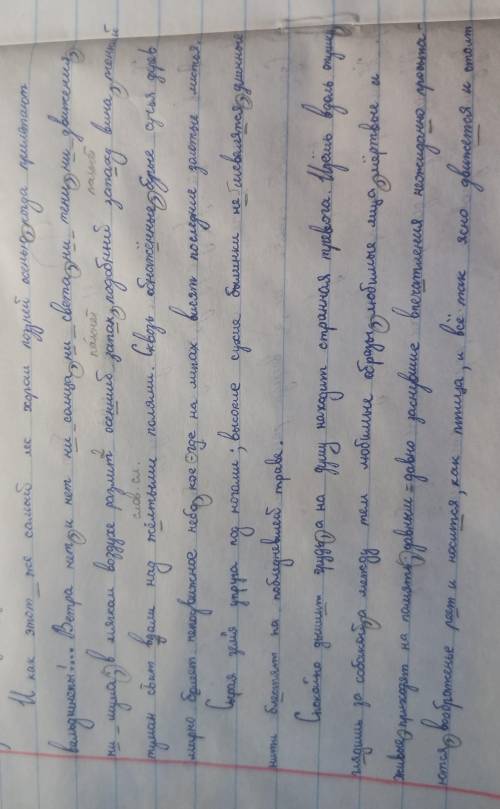 И как этот же самый лес хорош поздней осенью, когда прилетают
вальдшнепы!... Ветра нет, и нет ни солнца, ни света, ни тени, ни движения,
ни шума; в мягком воздухе разлит осенний запах, подобный запаху вина; тонкий
туман стоит вдали над жёлтыми полями. Сквозь обнажённые, бурые сучья дерев
мирно белеет неподвижное небо; кое-где на липах висят последние золотые листья.
Сырая земля упруга под ногами; высокие сухие былинки не шевелятся; длинные
нити блестят на побледневшей траве.
Спокойно дышит грудь, а на душу находит странная тревога. Идёшь вдоль опушки,
глядишь за собакой, а между тем любимые образы, любимые лица, мёртвые и
живые, приходят на память, давным-давно заснувшие впечатления неожиданно просыпа-
ются; воображенье реет и носится, как птица, и всё так ясно движется и стоит